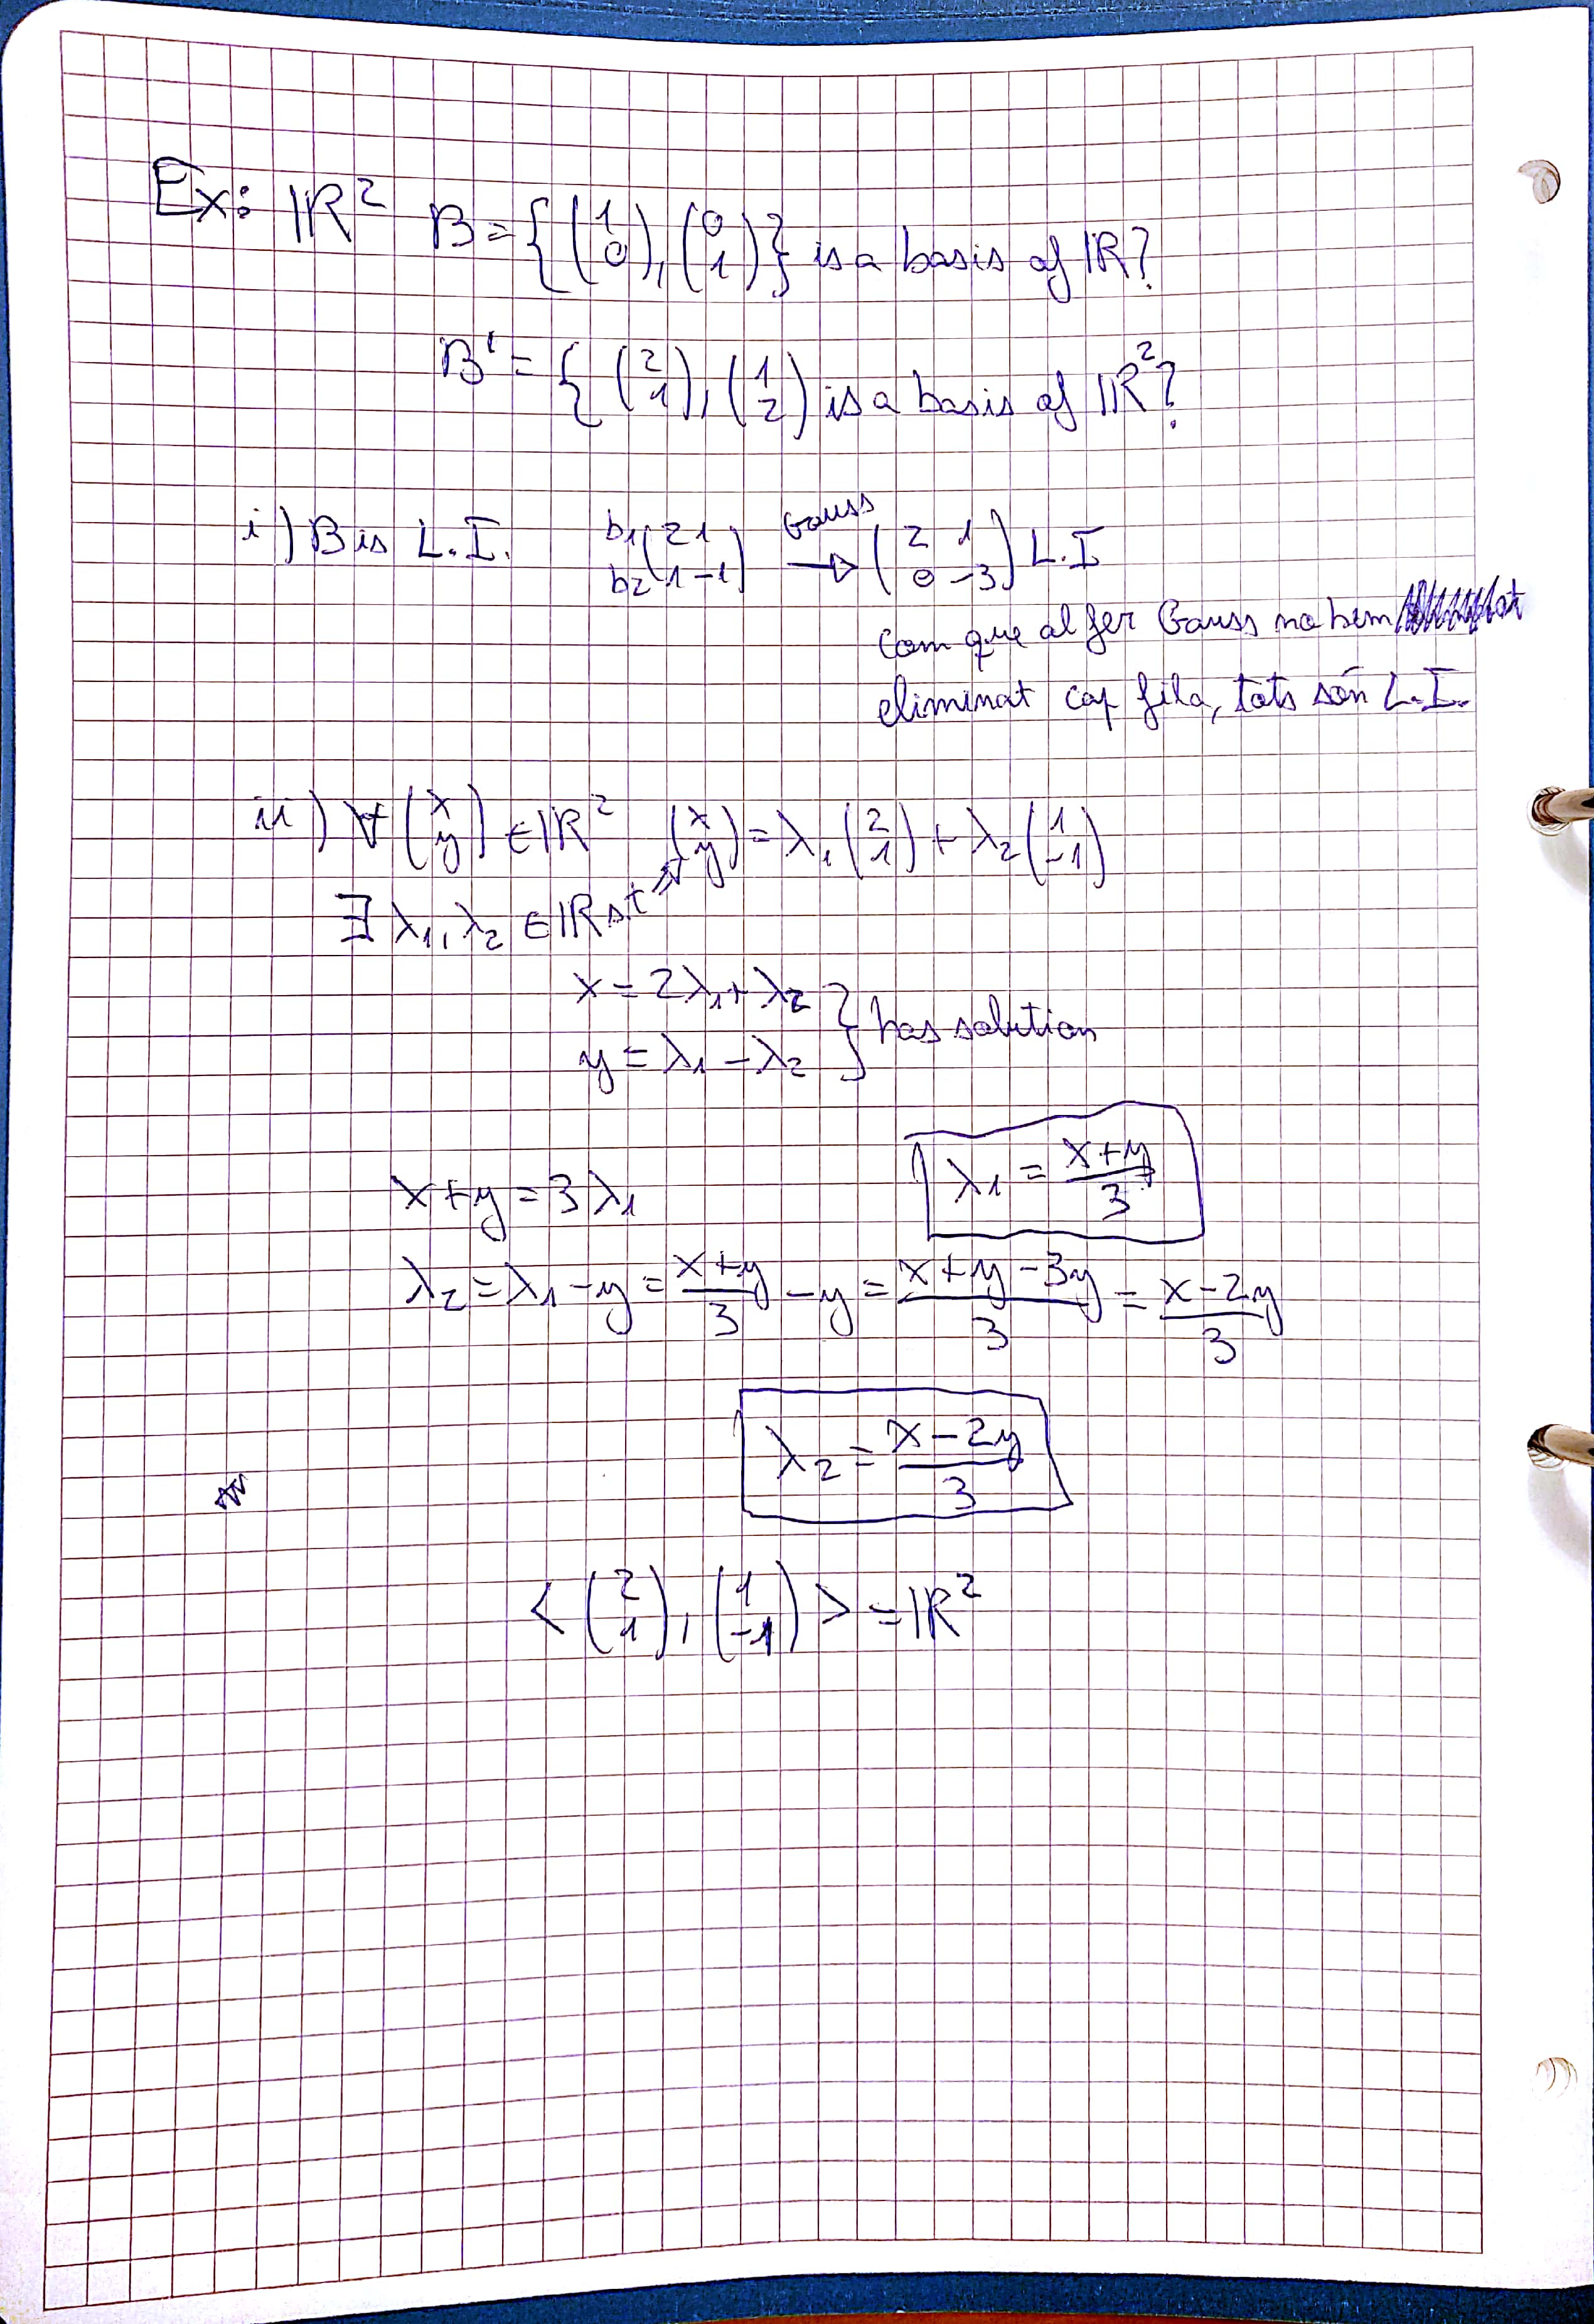 Ex: ℝ² B = {(1 0), (0 1)} is a basis of ℝ?
B' = {(2 1), (1 2) is a basis of ℝ²?
i) B is L.I. b1 (2 1) Gauss → (2 1) L.I
b2 (1 -1) (0 -3)
com que al fer Gauss no hem
eliminat cap fila, tots són L.I.
ii) ∀ (x y) ∈ ℝ² (x y) = λ₁ (2 1) + λ₂ (1 -1)
∃ λ₁, λ₂ ∈ ℝ s.t
x = 2λ₁ + λ₂
y = λ₁ - λ₂ } has solution
x + y = 3λ₁ λ₁ = (x+y)/3
λ₂ = λ₁ - y = (x+y)/3 - y = (x+y-3y)/3 = (x-2y)/3
λ₂ = (x-2y)/3
< (2 1), (1 -1) > = ℝ²